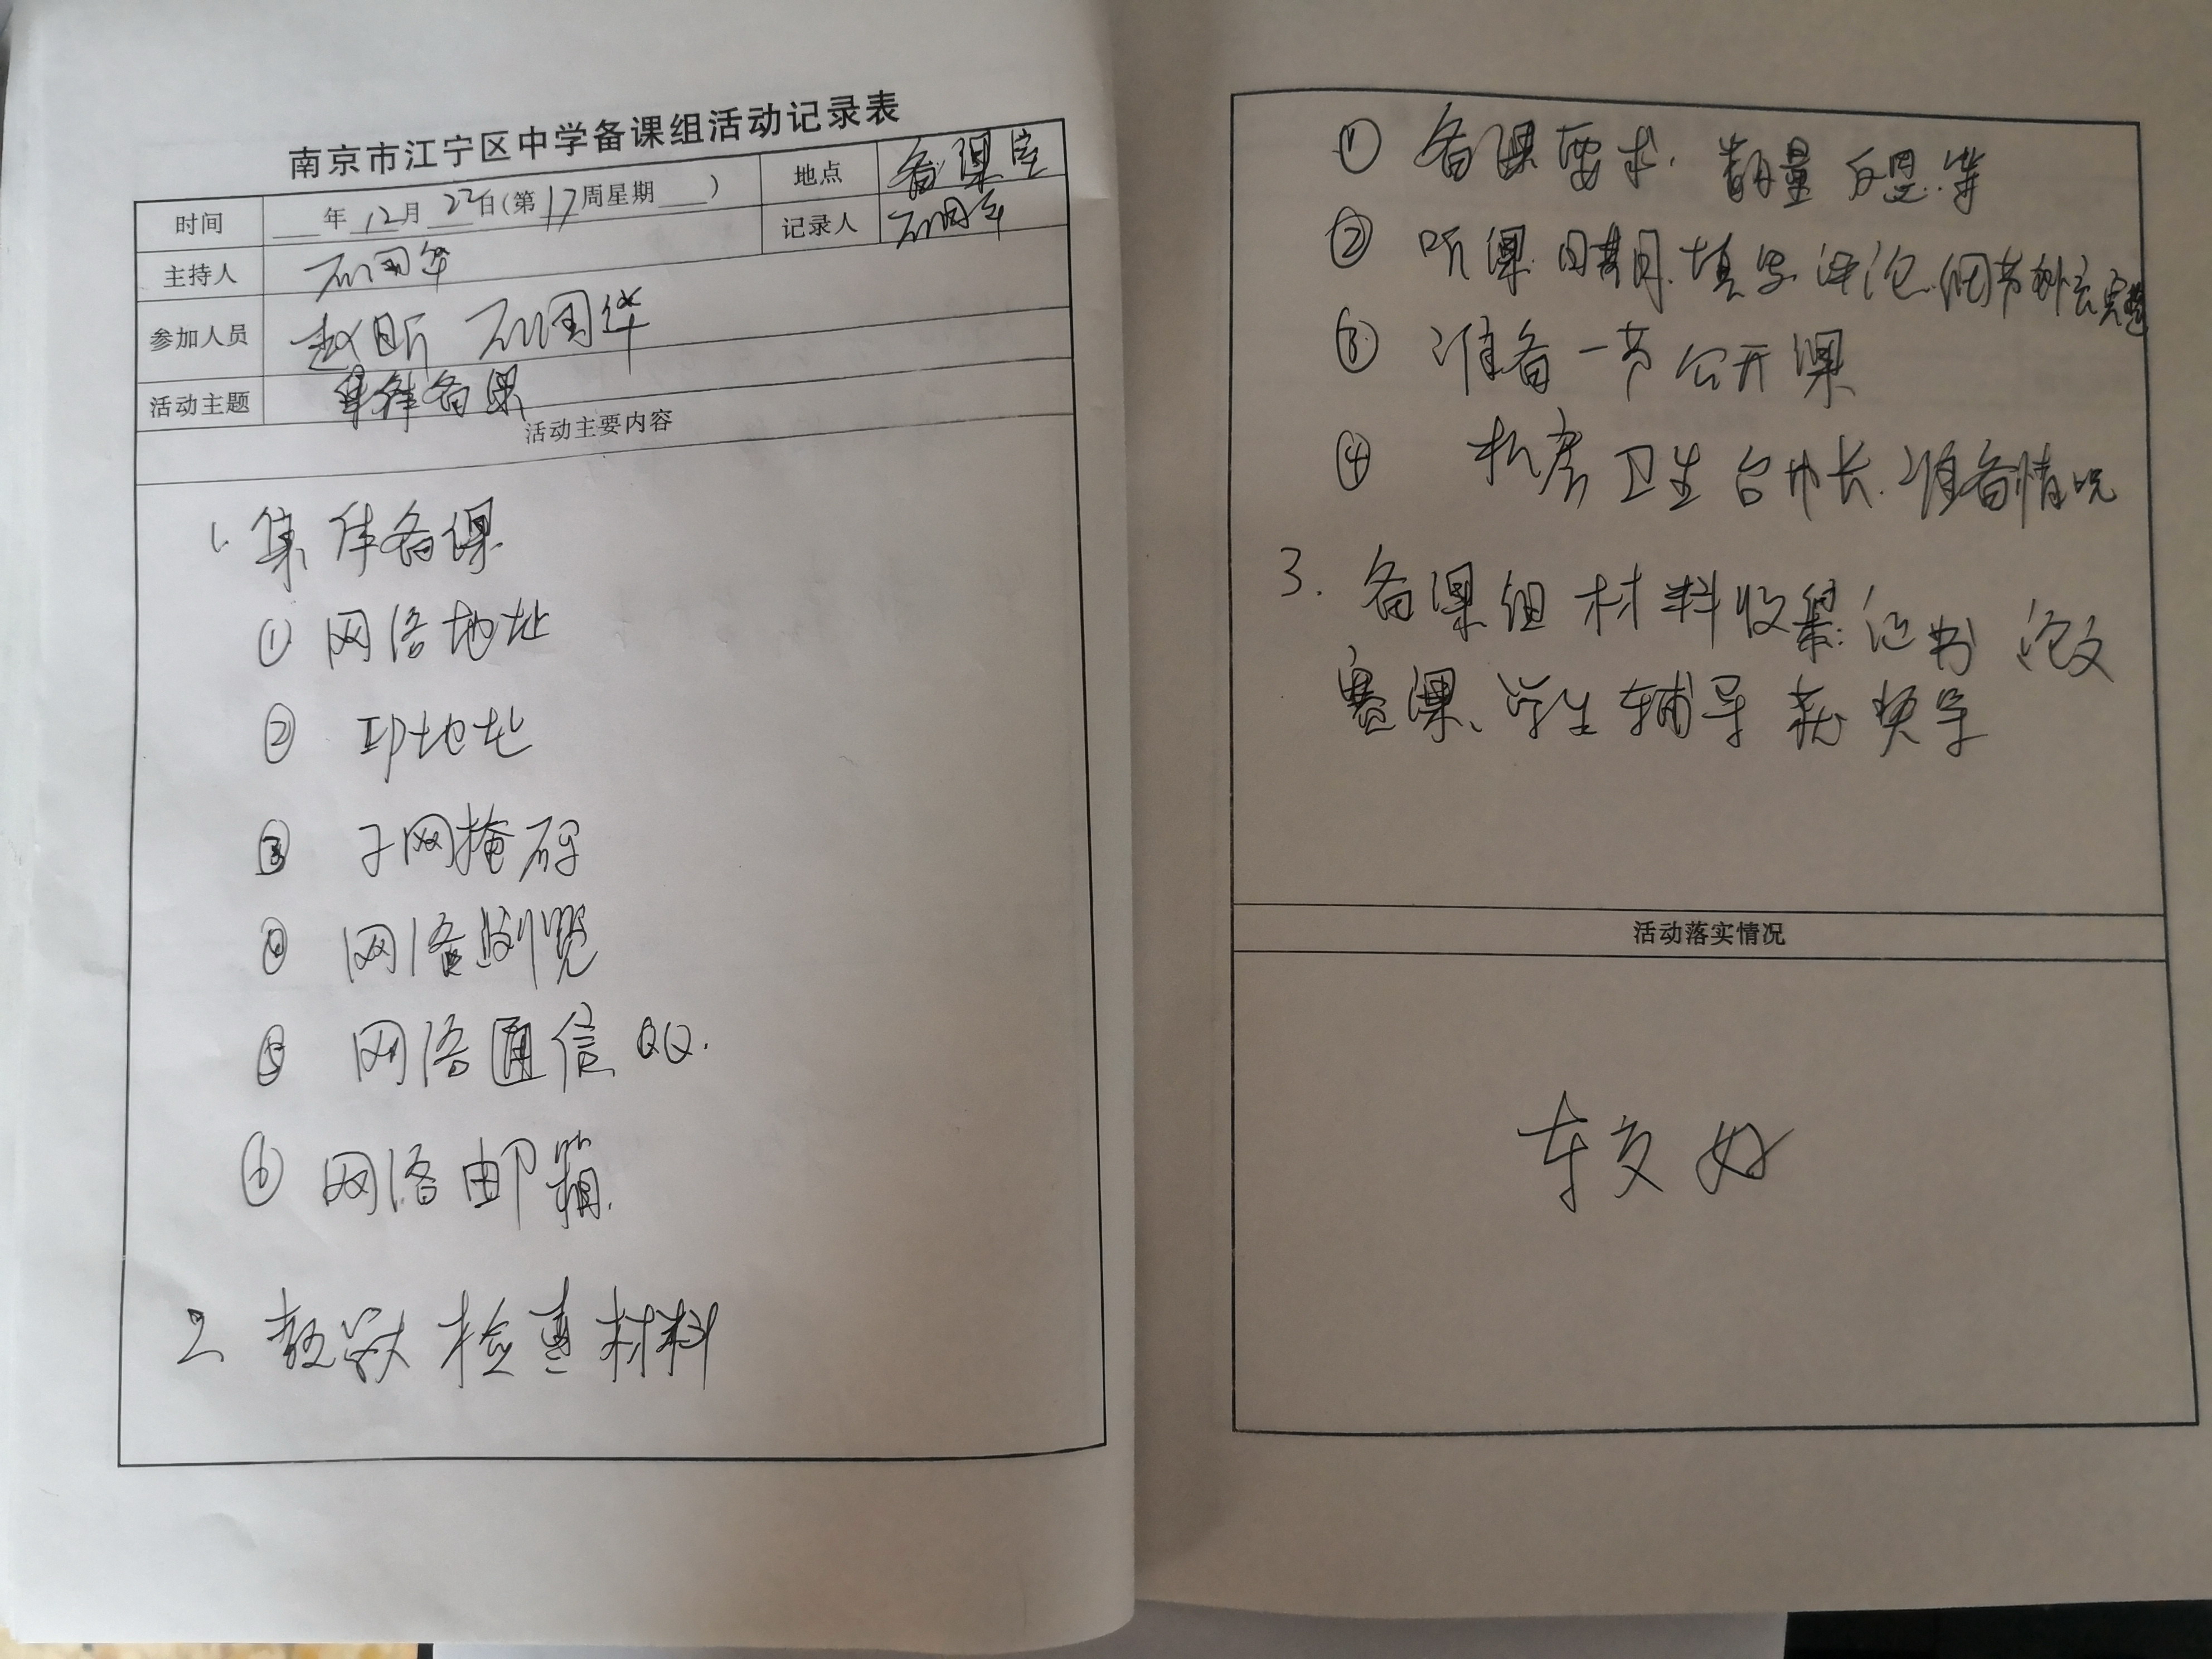 南京市江宁区中学备课组活动记录表
时间 年 12月 22日(第 17周星期 ) 地点 备课室
主持人 石国华 记录人 石国华
参加人员 赵昕 石国华
活动主题 集体备课
活动主要内容
1. 集体备课
① 网络地址
② IP地址
③ 子网掩码
④ 网络浏览
⑤ 网络通信 QQ.
⑥ 网络邮箱.
2 教学检查材料
① 备课要求. 数量 反思.等
② 听课 日期. 填写 评论. 细节 完整
③ 准备一节公开课
④ 机房 卫生 台帐. 准备情况
3. 备课组材料收集: 证书 论文
赛课、学生辅导获奖等
活动落实情况
较好